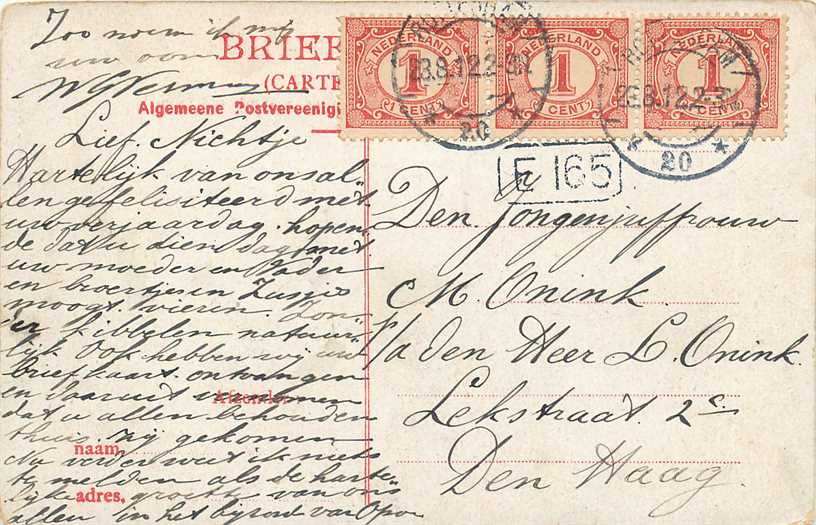 Zoo noem ik mij
uw oom
BRIEF
(CARTE
Algemeene Postvereenigi
NEDERLAND
1
CENT
NEDERLAND
1
CENT
NEDERLAND
1
CENT
28.8.12.2-3N
28.8.12.2-3N
20
20
E 165
Lief. Nichtje
Hartelijk van ons al
len gefeliciteerd met
uw verjaardag. hopen
de dat u dien dag met
uw moeder en Vader
en broertje en Zusje
moogt vieren. Zon
er kibbelen natuur
lijk Ook hebben wij uw
briefkaart ontvangen
en daaruit vernomen
dat u allen behouden
thuis zij gekomen
Nu verder weet ik niets
te melden als de harte
lijke groete van ons
allen in het bijzond van Opoe
Afzender
naam,
adres,
Den Jongejuffrouw
M. Onink.
p/a den Heer L. Onink.
Lekstraat 2c.
Den Haag.